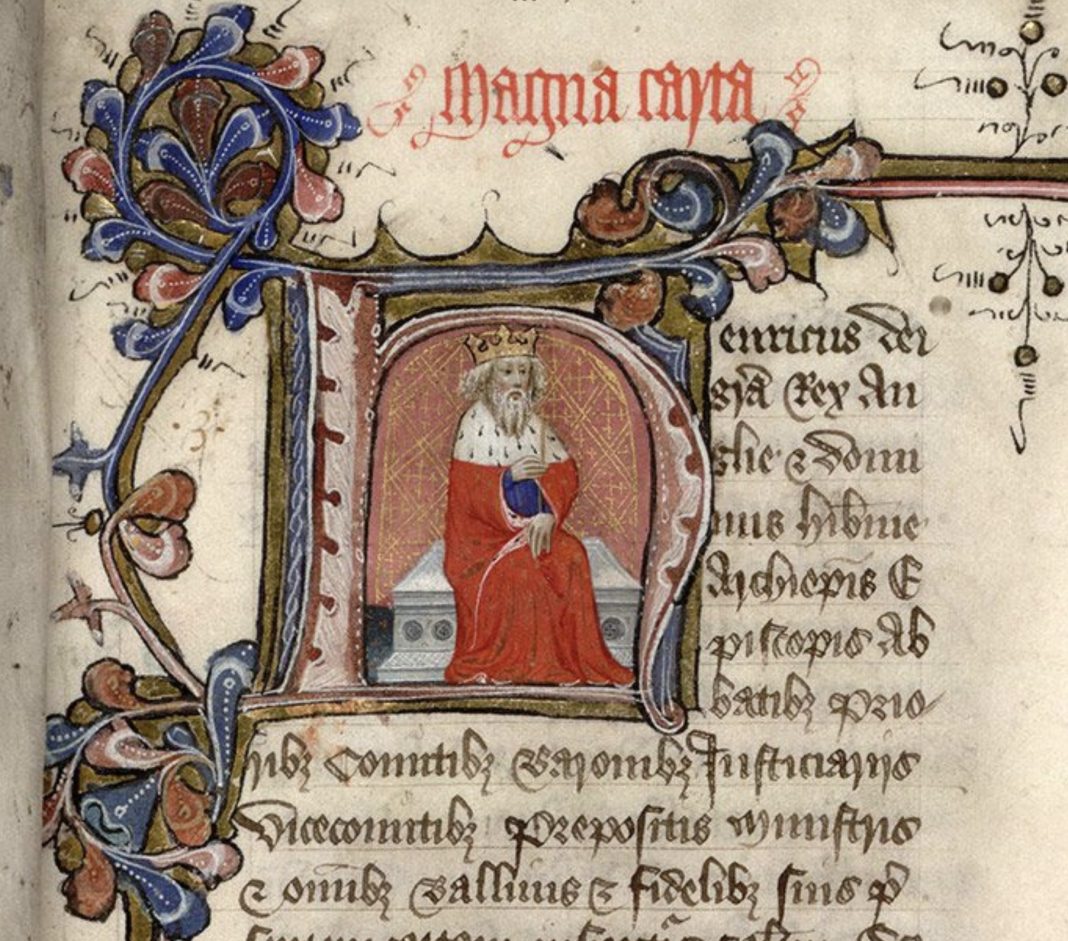 Magna carta
Henricus dei
gra Rex An
glie & domi
nus hibnie
Archiepis E
piscopis Ab
batibz Prio
ribz Comitibz Baronibz Iusticiariis
Vicecomitibz Prepositis Ministris
& omibz Ballivis & fidelibz suis p